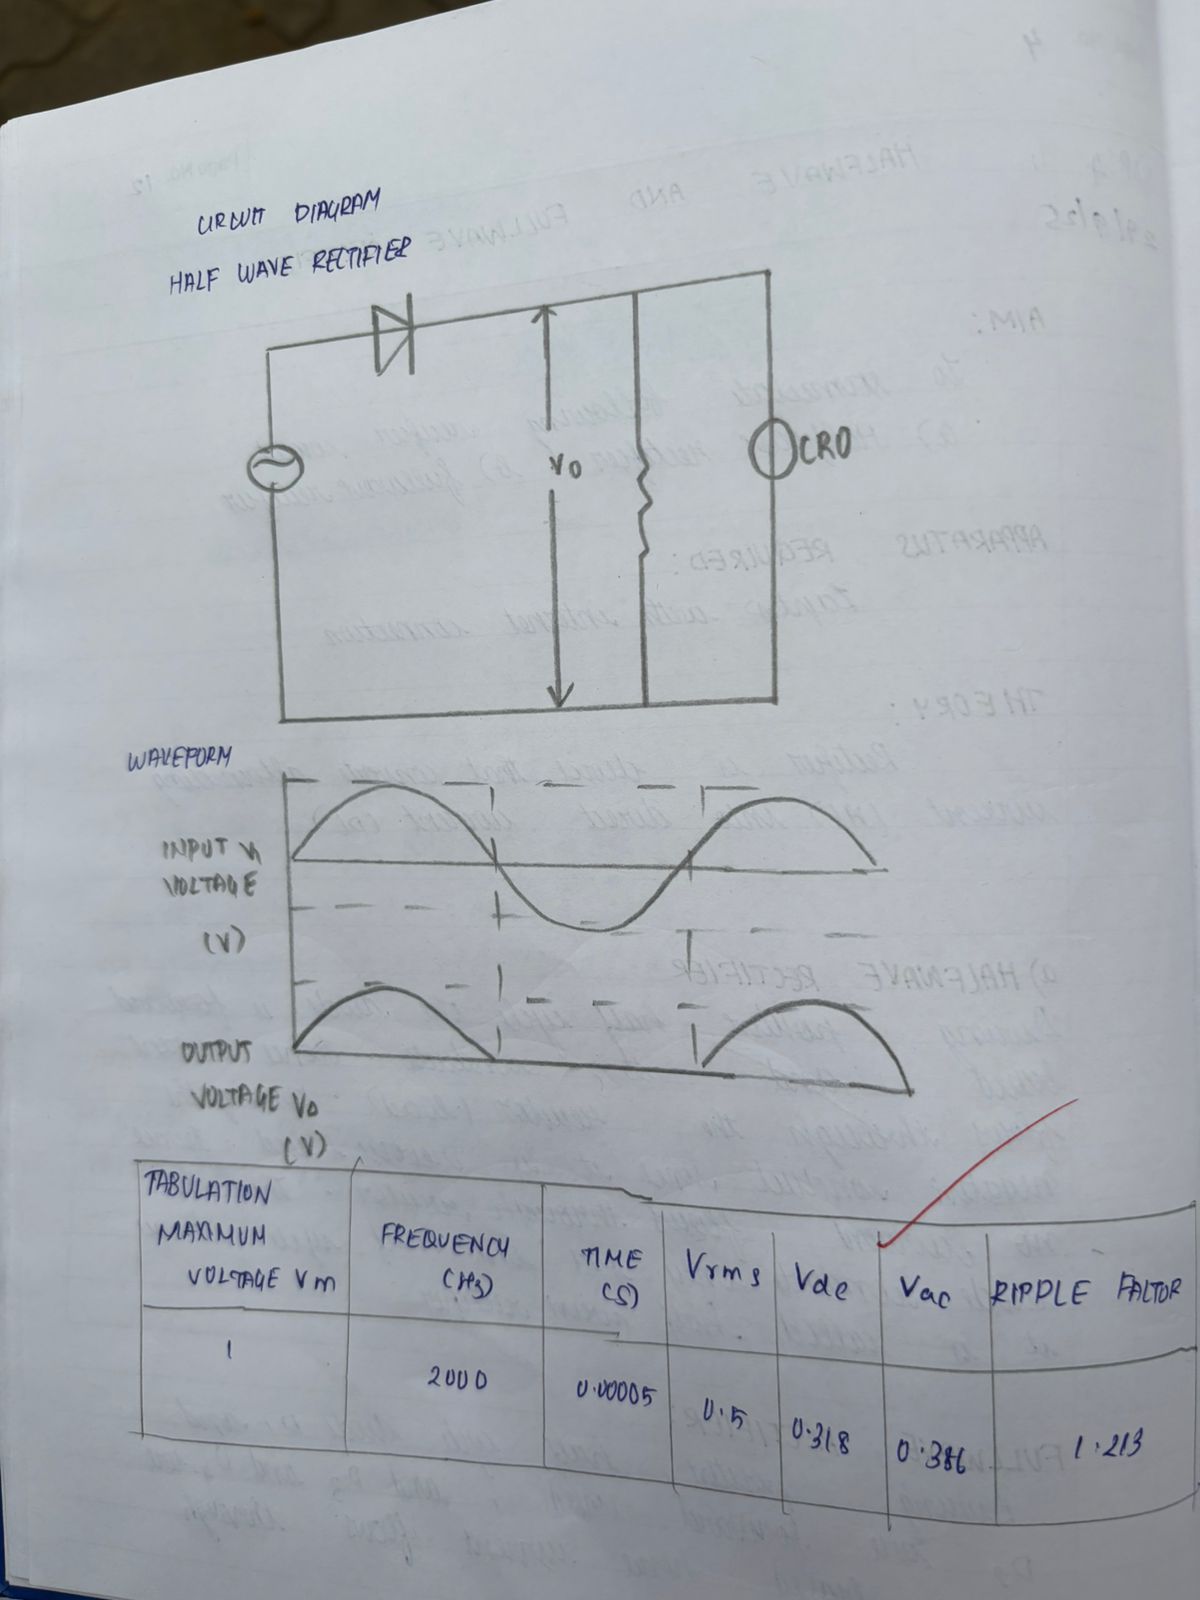 CIRCUIT DIAGRAM
HALF WAVE RECTIFIER
V0
CRO
WAVEFORM
INPUT Vi
VOLTAGE
(V)
OUTPUT
VOLTAGE V0
(V)
TABULATION
MAXIMUM
VOLTAGE Vm
FREQUENCY
(Hz)
TIME
(S)
Vrms
Vdc
Vac
RIPPLE FACTOR
1
2000
0.00005
0.5
0.318
0.386
1.213